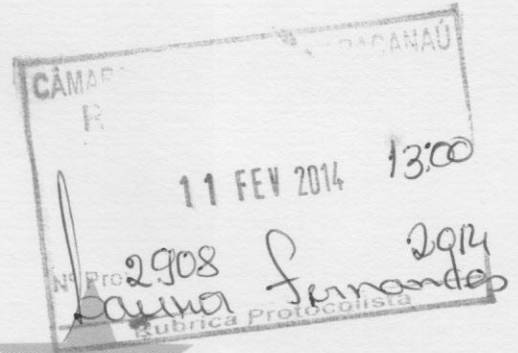 CÂMAR ARACANAÚ
R
11 FEV 2014 13:00
Nº Pro 2908 2014
Launa Fernandes
Rubrica Protocolista